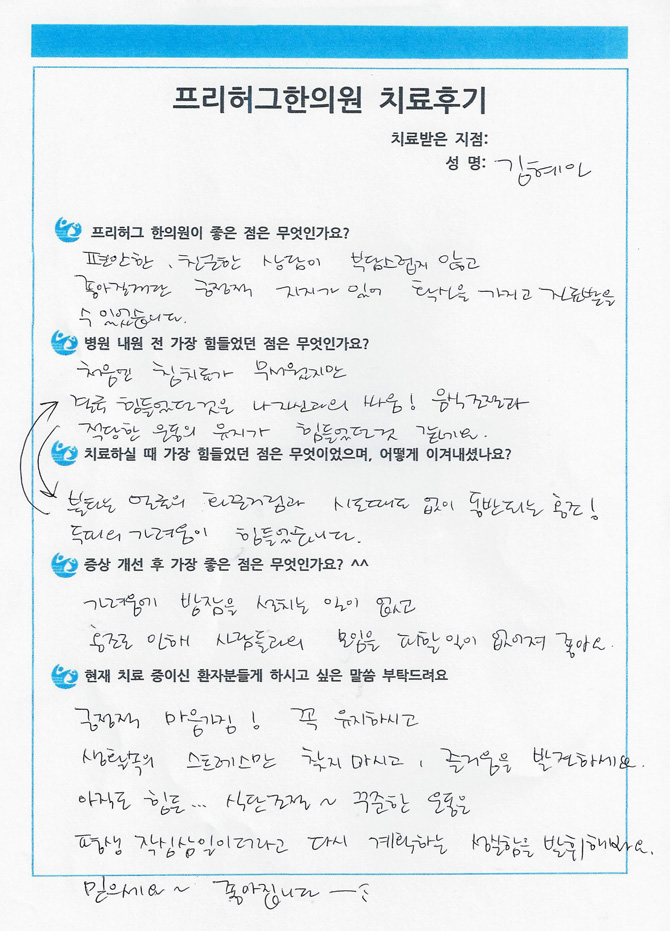 프리허그한의원 치료후기
치료받은 지점:
성 명: 김혜인
프리허그 한의원이 좋은 점은 무엇인가요?
편안한, 친근한 상담이 부담스럽지 않고
좋아질거란 긍정적 지지가 있어 확신을 가지고 진료받을
수 있었습니다.
병원 내원 전 가장 힘들었던 점은 무엇인가요?
처음엔 침치료가 무서웠지만
힘들었던것은 나 자신과의 싸움! 음식조절과
적당한 운동의 유지가 힘들었던것 같네요.
치료하실 때 가장 힘들었던 점은 무엇이었으며, 어떻게 이겨내셨나요?
불타는 얼굴의 화끈거림과 시도때도 없이 동반되는 홍조!
목뒤의 가려움이 힘들었습니다.
증상 개선 후 가장 좋은 점은 무엇인가요? ^^
가려움에 밤잠을 설치는 일이 없고
홍조로 인해 사람들과의 모임을 피할일이 없어져 좋아요.
현재 치료 중이신 환자분들게 하시고 싶은 말씀 부탁드려요
긍정적 마음가짐! 꼭 유지하시고
생활속의 스트레스만 찾지 마시고, 즐거움을 발견하세요.
아직도 힘든... 식단조절~ 꾸준한 운동을
평생 작심삼일이더라고 다시 계획하는 성실함을 발휘해봐요.
믿으세요~ 좋아집니다